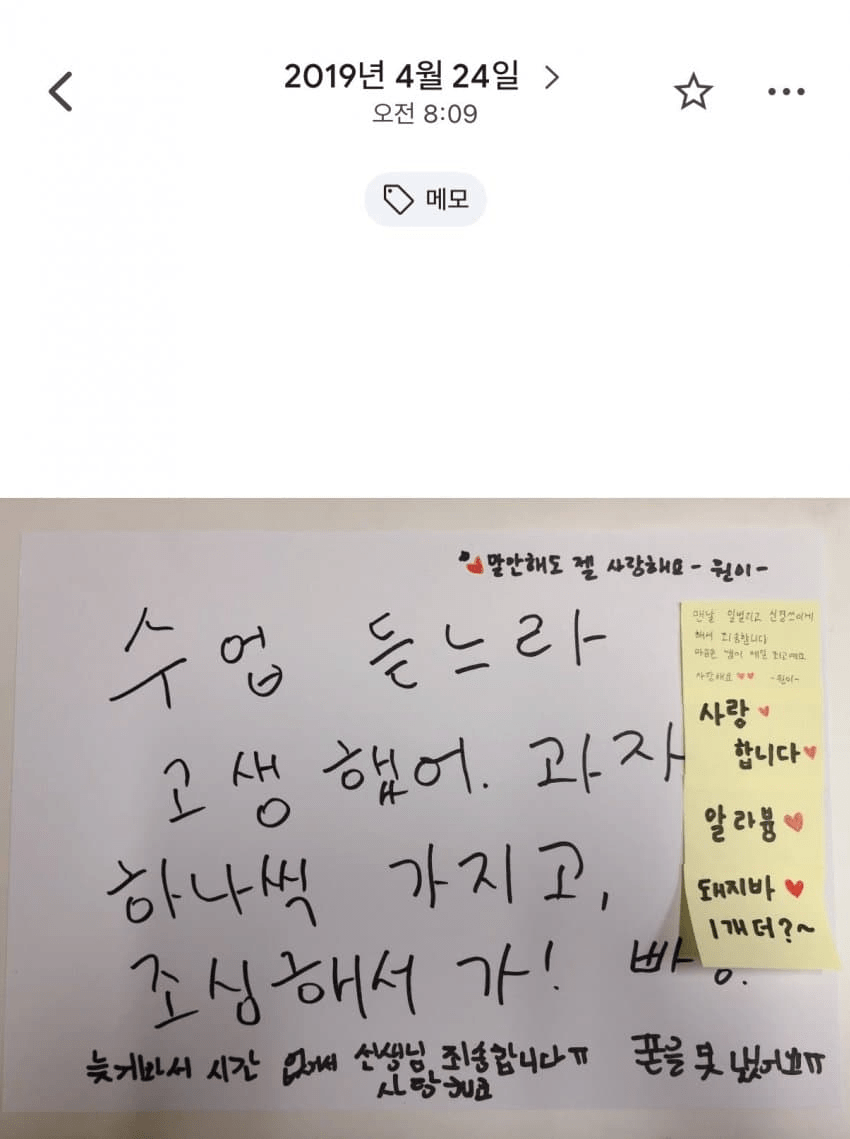 2019년 4월 24일
오전 8:09
메모
말안해도 젤 사랑해요 - 원이 -
수업 듣느라
고생했어. 과자
하나씩 가지고,
조심해서 가!
맨날 일벌리고 신경쓰이게
해서 죄송합니다
쌤이 제일 최고예요
사랑해요 -원이-
사랑
합니다
알라븅
돼지바
1개 더?~
늦게와서 시간 없어서 선생님 죄송합니다ㅠ
사랑해요
폰을 못 냈어요ㅠ